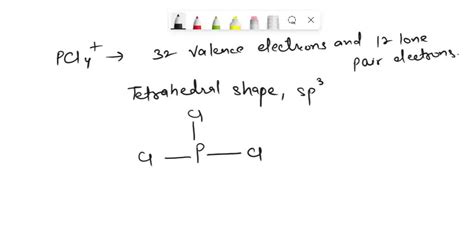 PCl4+ → 32 valence electrons and 12 lone
pair electrons.
Tetrahedral shape, sp3
Cl
Cl — P — Cl